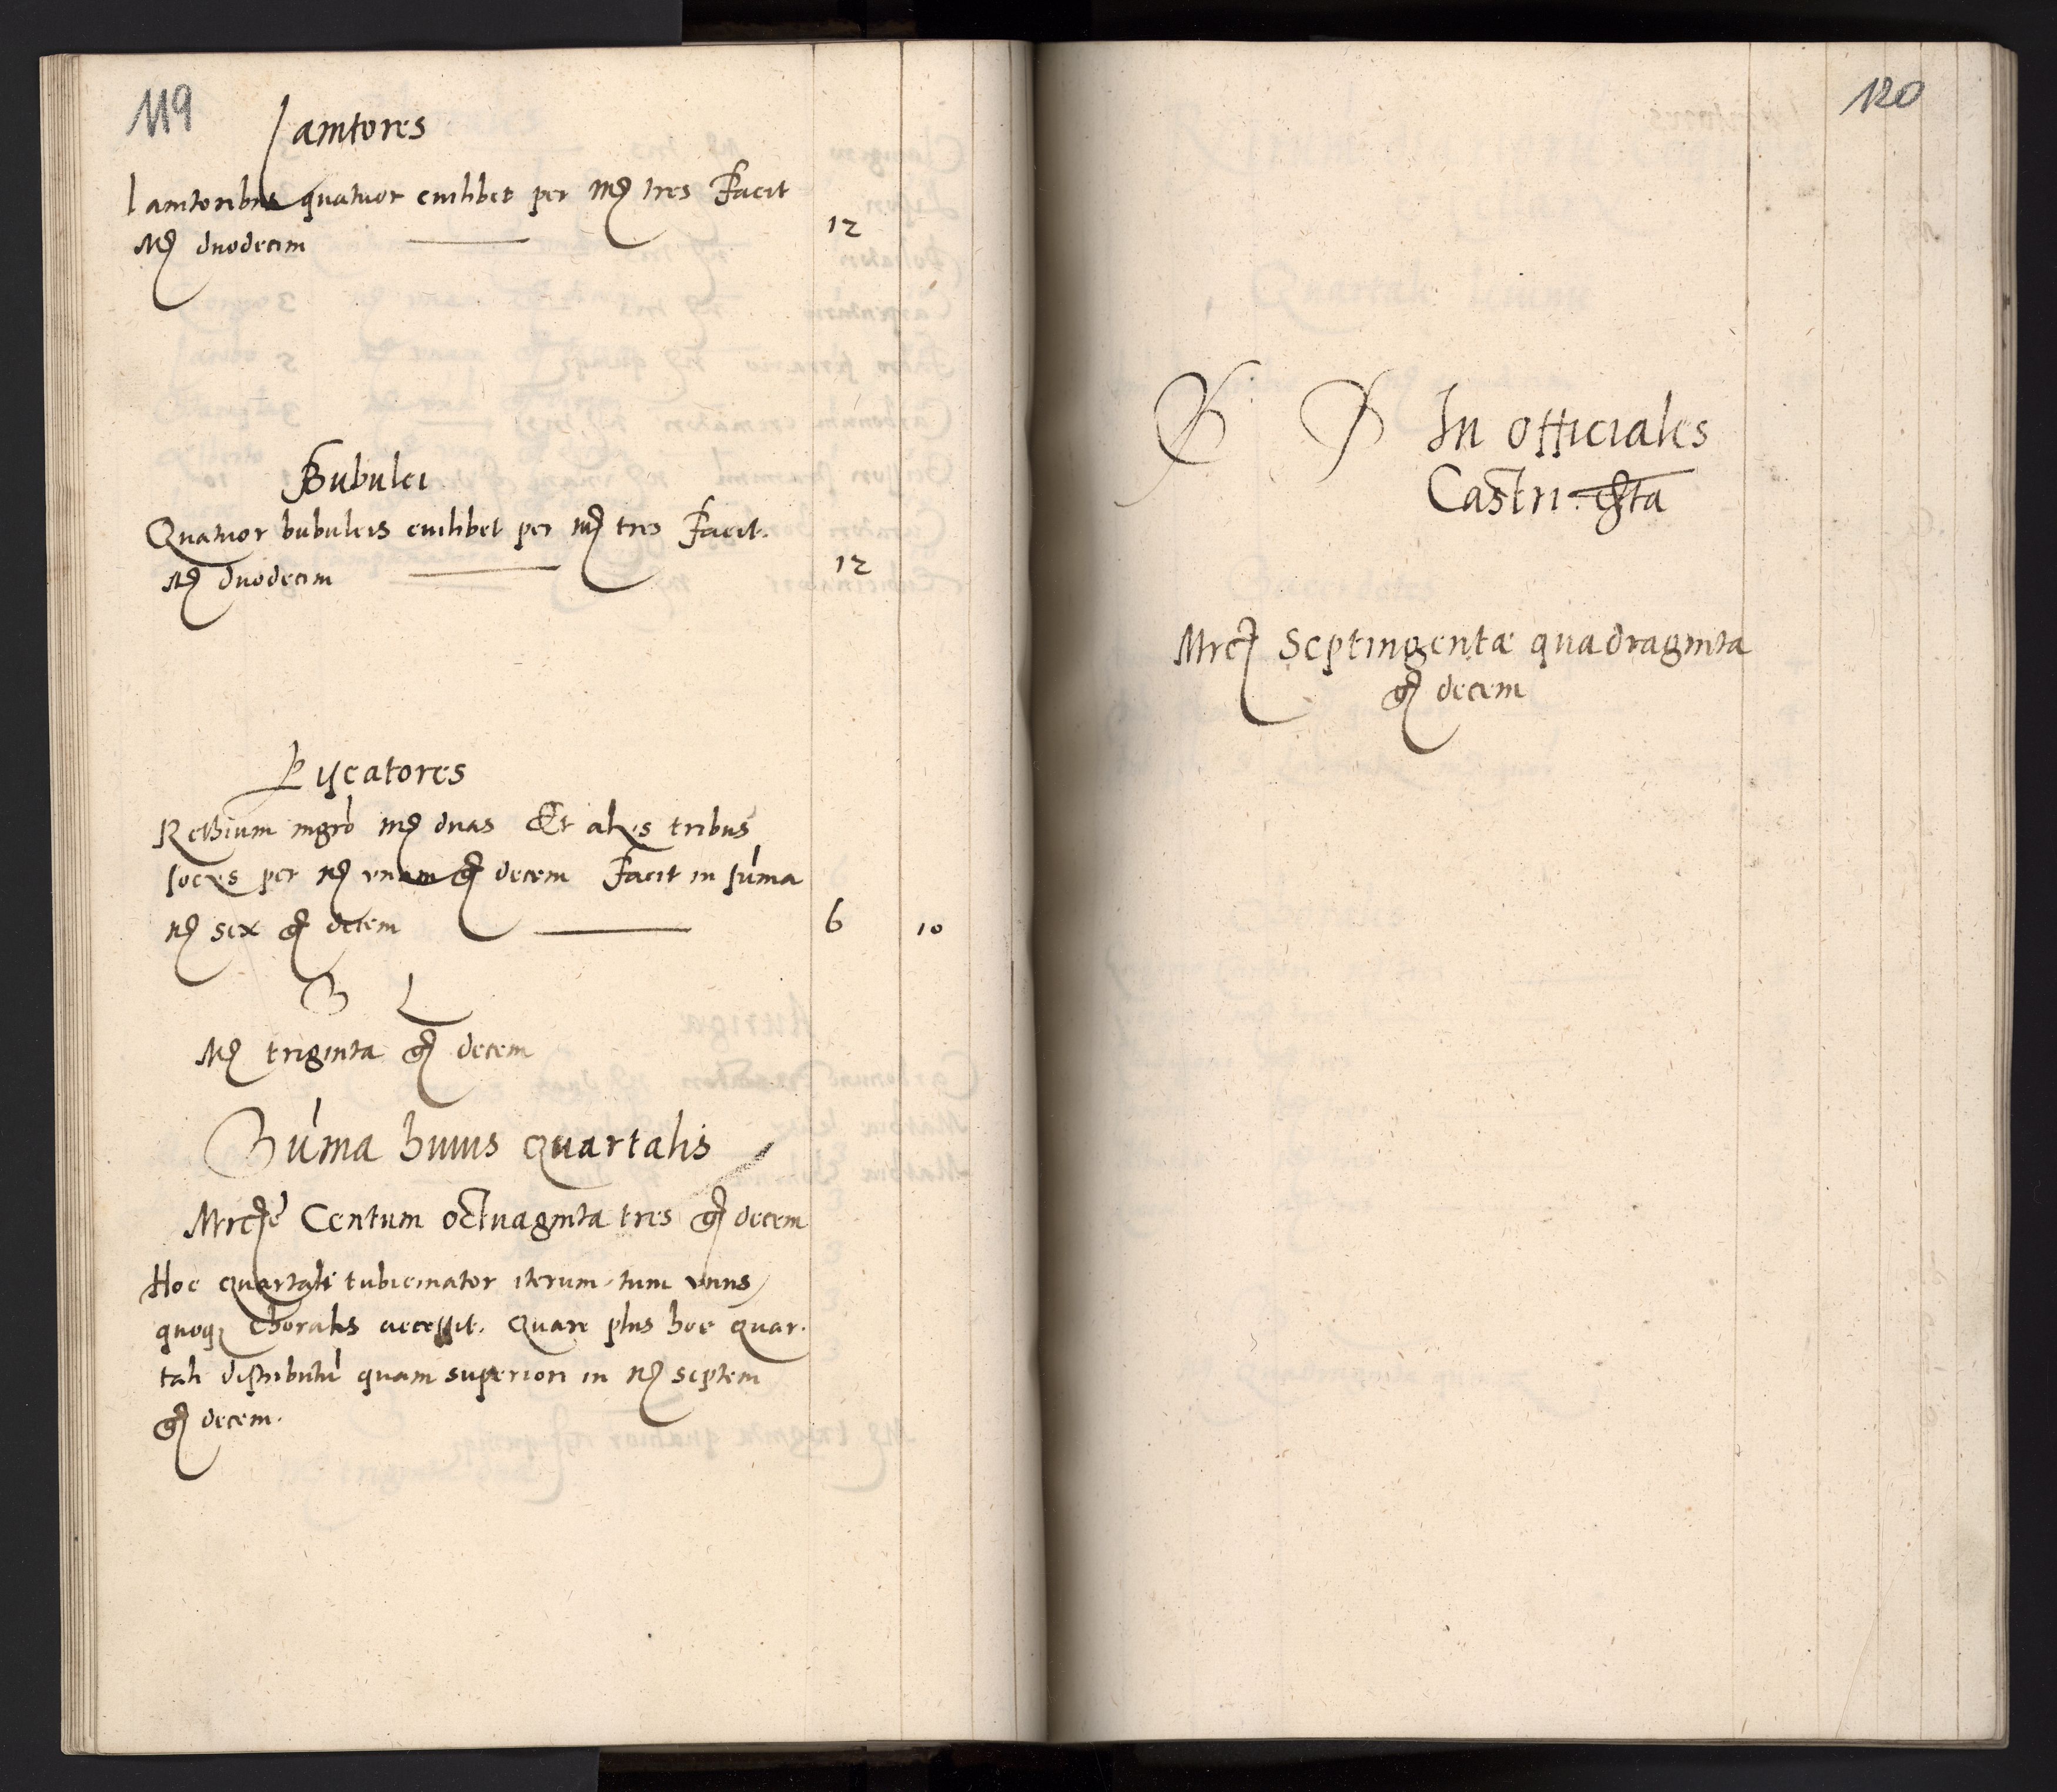 119
Ianitores
Ianitoribus quatuor cuilibet per Mr tres Facit
Mr duodecim 12
Bubulci
Quatuor bubulcis cuilibet per mr tres Facit.
Mr duodecim 12
Piscatores
Rethium mgro mr duas Et alijs tribus
socijs per mr vnam gr decem Facit in suma
mr sex gr decem 6 10
S L
Mr triginta gr decem
Suma huius quartalis
Mrcae Centum octuaginta tres gr decem
Hoc quartali tubicinator iterum, tum vnus
quoqz Choralis accessit. Quare plus hoc quar-
tali distributu quam superiori in mr septem
gr decem.
120
In officiales
Castri
Mrc Septingentæ quadraginta
gr decem